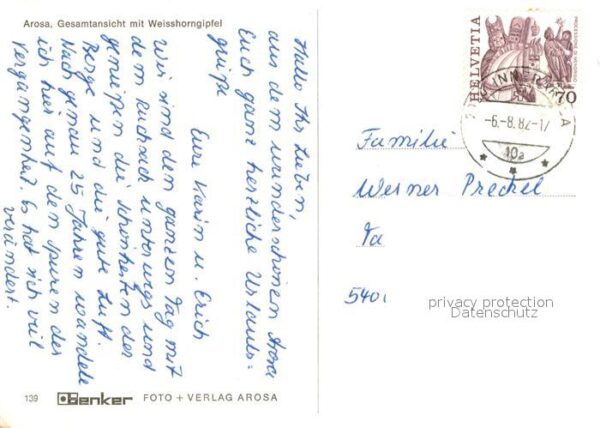 Arosa, Gesamtansicht mit Weisshorngipfel
Hallo Ihr Lieben,
aus dem wunderschönen Arosa
Euch ganz herzliche Urlaubs=
grüße
Eure Karin u. Erich
Wir sind den ganzen Tag mit
dem Rucksack unterwegs und
genießen die Schönheiten der
Berge und die gute Luft.
Nach genau 25 Jahren wandele
ich hier auf den Spuren der
Vergangenheit. Es hat sich viel
verändert.
139 Benker FOTO + VERLAG AROSA
HELVETIA
70
-6.-8.82-17
10a
Familie
Werner Preckel
540
privacy protection
Datenschutz